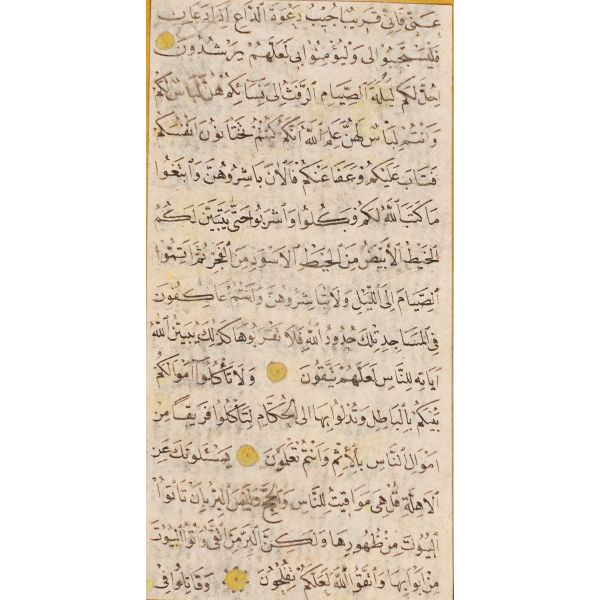 عَنِّي فَإِنِّي قَرِيبٌ أُجِيبُ دَعْوَةَ الدَّاعِ إِذَا دَعَانِ
فَلْيَسْتَجِيبُوا لِي وَلْيُؤْمِنُوا بِي لَعَلَّهُمْ يَرْشُدُونَ
أُحِلَّ لَكُمْ لَيْلَةَ الصِّيَامِ الرَّفَثُ إِلَى نِسَائِكُمْ هُنَّ لِبَاسٌ لَكُمْ
وَأَنْتُمْ لِبَاسٌ لَهُنَّ عَلِمَ اللَّهُ أَنَّكُمْ كُنْتُمْ تَخْتَانُونَ أَنْفُسَكُمْ
فَتَابَ عَلَيْكُمْ وَعَفَا عَنْكُمْ فَالْآنَ بَاشِرُوهُنَّ وَابْتَغُوا
مَا كَتَبَ اللَّهُ لَكُمْ وَكُلُوا وَاشْرَبُوا حَتَّى يَتَبَيَّنَ لَكُمُ
الْخَيْطُ الْأَبْيَضُ مِنَ الْخَيْطِ الْأَسْوَدِ مِنَ الْفَجْرِ ثُمَّ أَتِمُّوا
الصِّيَامَ إِلَى اللَّيْلِ وَلَا تُبَاشِرُوهُنَّ وَأَنْتُمْ عَاكِفُونَ
فِي الْمَسَاجِدِ تِلْكَ حُدُودُ اللَّهِ فَلَا تَقْرَبُوهَا كَذَلِكَ يُبَيِّنُ اللَّهُ
آيَاتِهِ لِلنَّاسِ لَعَلَّهُمْ يَتَّقُونَ وَلَا تَأْكُلُوا أَمْوَالَكُمْ
بَيْنَكُمْ بِالْبَاطِلِ وَتُدْلُوا بِهَا إِلَى الْحُكَّامِ لِتَأْكُلُوا فَرِيقًا مِنْ
أَمْوَالِ النَّاسِ بِالْإِثْمِ وَأَنْتُمْ تَعْلَمُونَ يَسْئَلُونَكَ عَنِ
الْأَهِلَّةِ قُلْ هِيَ مَوَاقِيتُ لِلنَّاسِ وَالْحَجِّ وَلَيْسَ الْبِرُّ بِأَنْ تَأْتُوا
الْبُيُوتَ مِنْ ظُهُورِهَا وَلَكِنَّ الْبِرَّ مَنِ اتَّقَى وَأْتُوا الْبُيُوتَ
مِنْ أَبْوَابِهَا وَاتَّقُوا اللَّهَ لَعَلَّكُمْ تُفْلِحُونَ وَقَاتِلُوا فِي